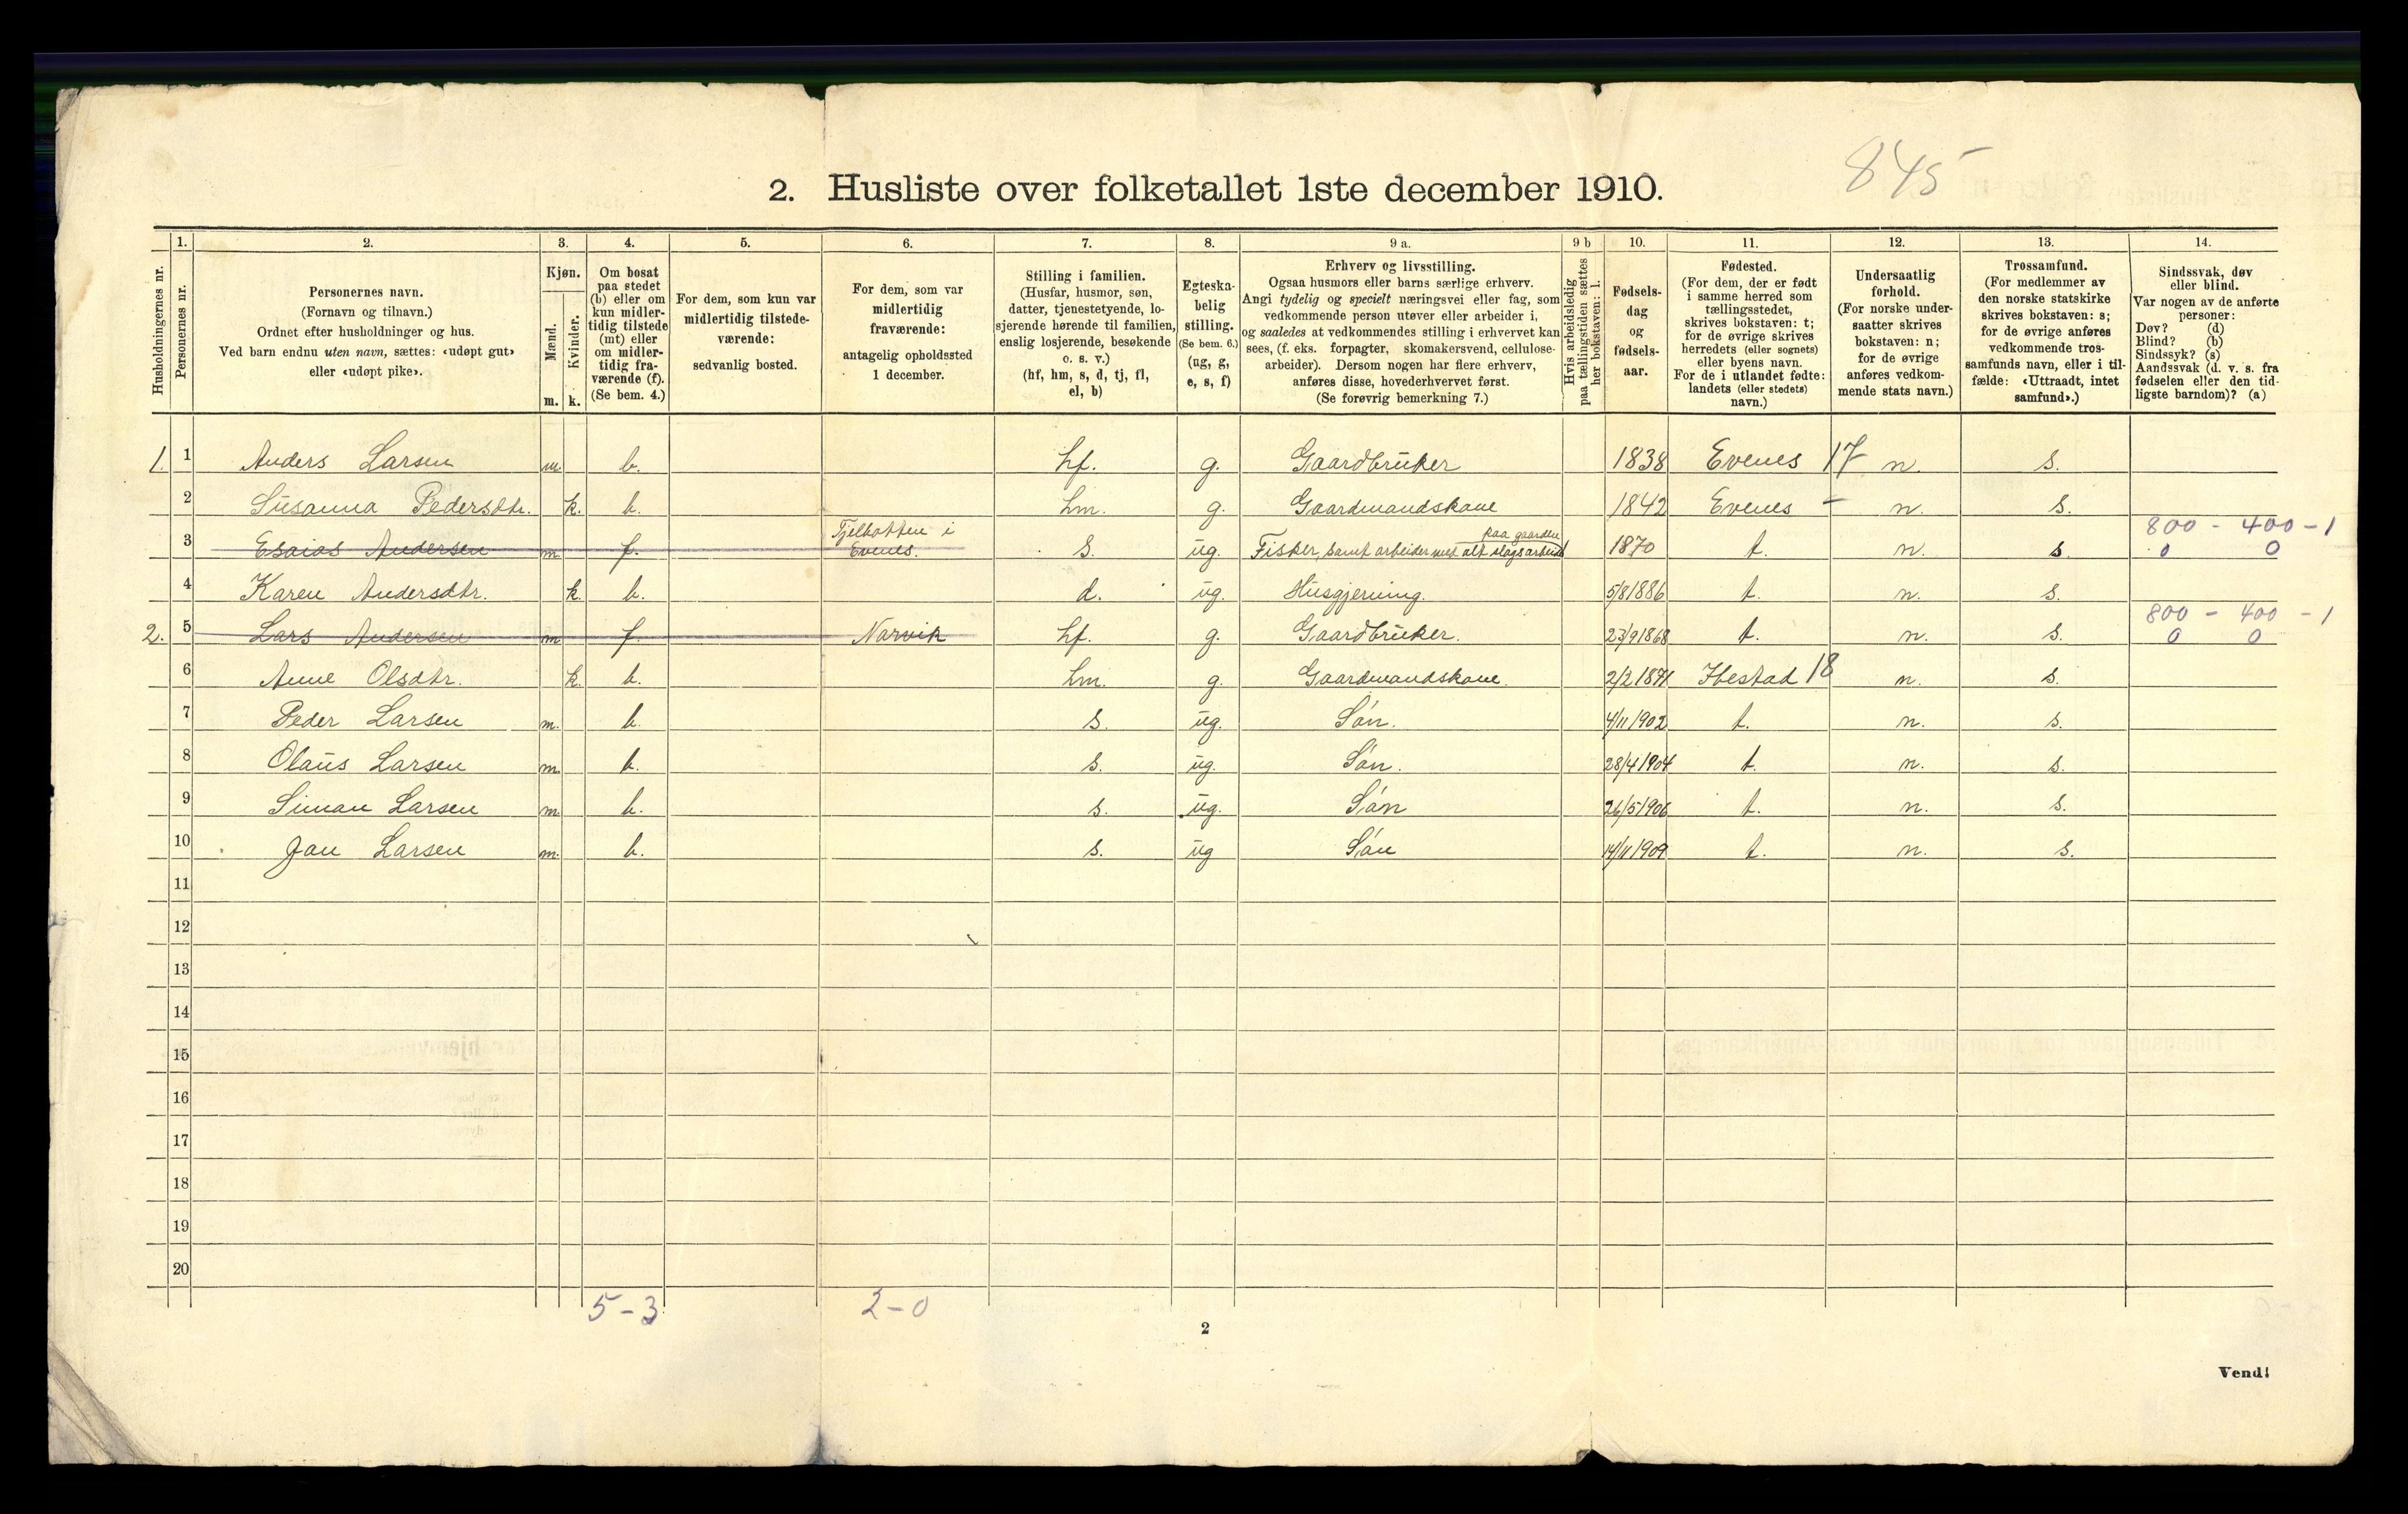 845
2. Husliste over folketallet 1ste december 1910.
Husholdningernes nr.
1. Personernes nr.
2. Personernes navn.
(Fornavn og tilnavn.)
Ordnet efter husholdninger og hus.
Ved barn endnu uten navn, sættes: «udøpt gut»
eller «udøpt pike».
3. Kjøn.
Mænd. m.
Kvinder. k.
4. Om bosat
paa stedet
(b) eller om
kun midler-
tidig tilstede
(mt) eller
om midler-
tidig fra-
værende (f).
(Se bem. 4.)
5. For dem, som kun var
midlertidig tilstede-
værende:
sedvanlig bosted.
6. For dem, som var
midlertidig
fraværende:
antagelig opholdssted
1 december.
7. Stilling i familien.
(Husfar, husmor, søn,
datter, tjenestetyende, lo-
sjerende hørende til familien,
enslig losjerende, besøkende
o. s. v.)
(hf, hm, s, d, tj, fl,
el, b)
8. Egteska-
belig
stilling.
(Se bem. 6.)
(ug, g,
e, s, f)
9 a. Erhverv og livsstilling.
Ogsaa husmors eller barns særlige erhverv.
Angi tydelig og specielt næringsvei eller fag, som
vedkommende person utøver eller arbeider i,
og saaledes at vedkommendes stilling i erhvervet kan
sees, (f. eks. forpagter, skomakersvend, cellulose-
arbeider). Dersom nogen har flere erhverv,
anføres disse, hovederhvervet først.
(Se forøvrig bemerkning 7.)
9 b Hvis arbeidsledig
paa tællingstiden sættes
her bokstaven: l.
10. Fødsels-
dag
og
fødsels-
aar.
11. Fødested.
(For dem, der er født
i samme herred som
tællingsstedet,
skrives bokstaven: t;
for de øvrige skrives
herredets (eller sognets)
eller byens navn.
For de i utlandet fødte:
landets (eller stedets)
navn.)
12. Undersaatlig
forhold.
(For norske under-
saatter skrives
bokstaven: n;
for de øvrige
anføres vedkom-
mende stats navn.)
13. Trossamfund.
(For medlemmer av
den norske statskirke
skrives bokstaven: s;
for de øvrige anføres
vedkommende tros-
samfunds navn, eller i til-
fælde: «Uttraadt, intet
samfund».)
14. Sindssvak, døv
eller blind.
Var nogen av de anførte
personer:
Døv? (d)
Blind? (b)
Sindssyk? (s)
Aandssvak (d. v. s. fra
fødselen eller den tid-
ligste barndom)? (a)
1. 1 Anders Larsen m. b. hf. g. Gaardbruker 1838 Evenes 17 n. s.
2 Susanna Pedersdtr. k. b. hm. g. Gaardmandskone 1842 Evenes - n. s.
3 Esaias Andersen m f. Tjelbotten i Evenes. s. ug. Fisker, samt arbeider med alt slags arbeid paa gaarden 1870 t. n. s. 800 - 400 - 1
0 0
4 Karen Andersdtr. k. b. d. ug. Husgjerning. 5/8 1886 t. n. s.
2. 5 Lars Andersen m f. Narvik hf. g. Gaardbruker. 23/9 1868 t. n. s. 800 - 400 - 1
0 0
6 Anne Olsdtr. k. b. hm. g. Gaardmandskone. 2/2 1871 Ibestad 18 n. s.
7 Peder Larsen m. b. s. ug. Søn. 4/11 1902 t. n. s.
8 Olaus Larsen m. b. s. ug. Søn. 28/4 1904 t. n. s.
9 Siman Larsen m. b. s. ug. Søn 26/5 1906 t. n. s.
10 Jan Larsen m. b. s. ug Søn 14/11 1909 t. n. s.
11
12
13
14
15
16
17
18
19
20
5 - 3 2 - 0
2
Vend!